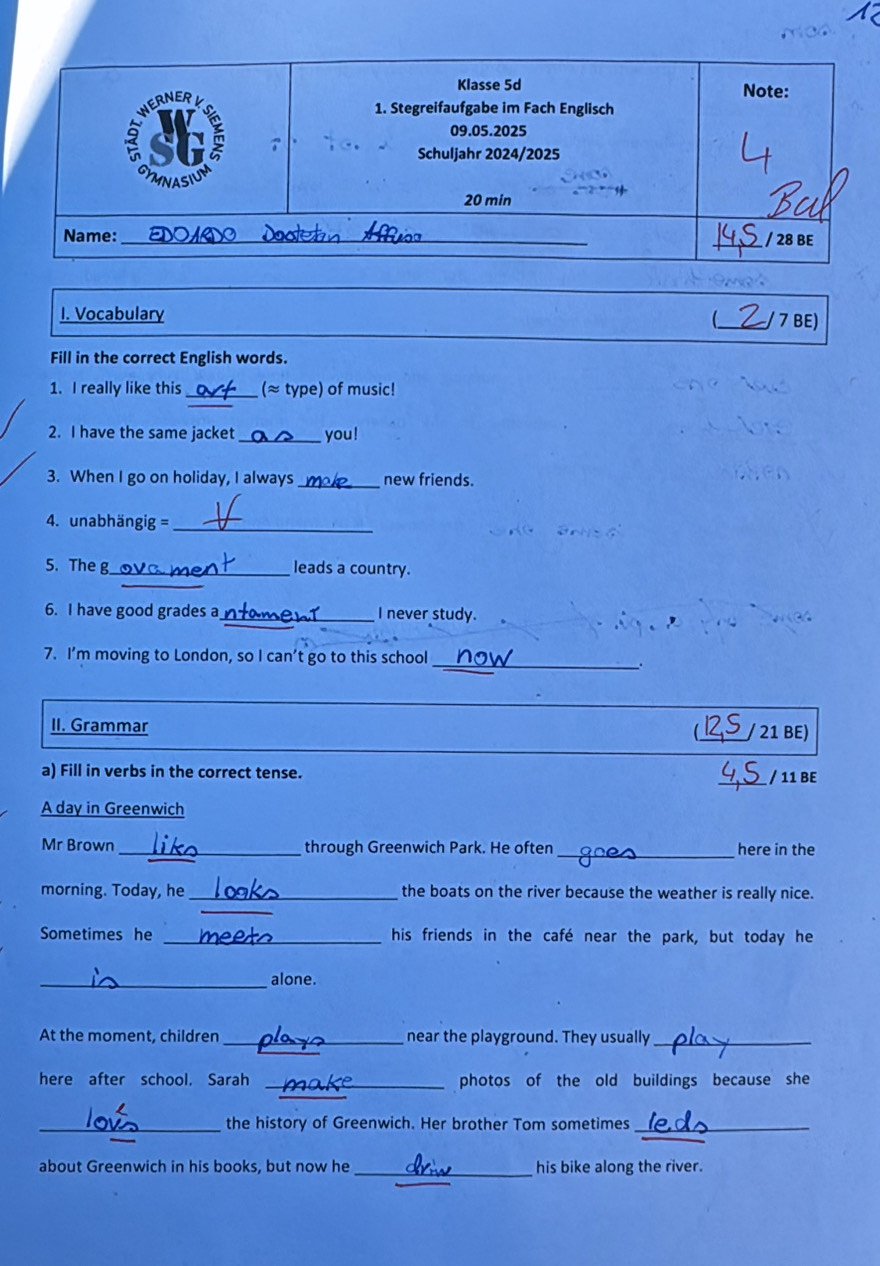 12
Klasse 5d
1. Stegreifaufgabe im Fach Englisch
09.05.2025
Schuljahr 2024/2025
20 min
STÄDT. WERNER V. SIEMENS GYMNASIUM
WSG
Note:
4
Name: EDOARDO
14,5 / 28 BE
I. Vocabulary (2 / 7 BE)
Fill in the correct English words.
1. I really like this art (≈ type) of music!
2. I have the same jacket as you!
3. When I go on holiday, I always make new friends.
4. unabhängig =
5. The govament leads a country.
6. I have good grades antament I never study.
7. I'm moving to London, so I can't go to this school now.
II. Grammar (12,5 / 21 BE)
a) Fill in verbs in the correct tense. 4,5 / 11 BE
A day in Greenwich
Mr Brown liks through Greenwich Park. He often goes here in the
morning. Today, he looks the boats on the river because the weather is really nice.
Sometimes he meets his friends in the café near the park, but today he
is alone.
At the moment, children plays near the playground. They usually play
here after school. Sarah make photos of the old buildings because she
lovs the history of Greenwich. Her brother Tom sometimes leds
about Greenwich in his books, but now he driw his bike along the river.